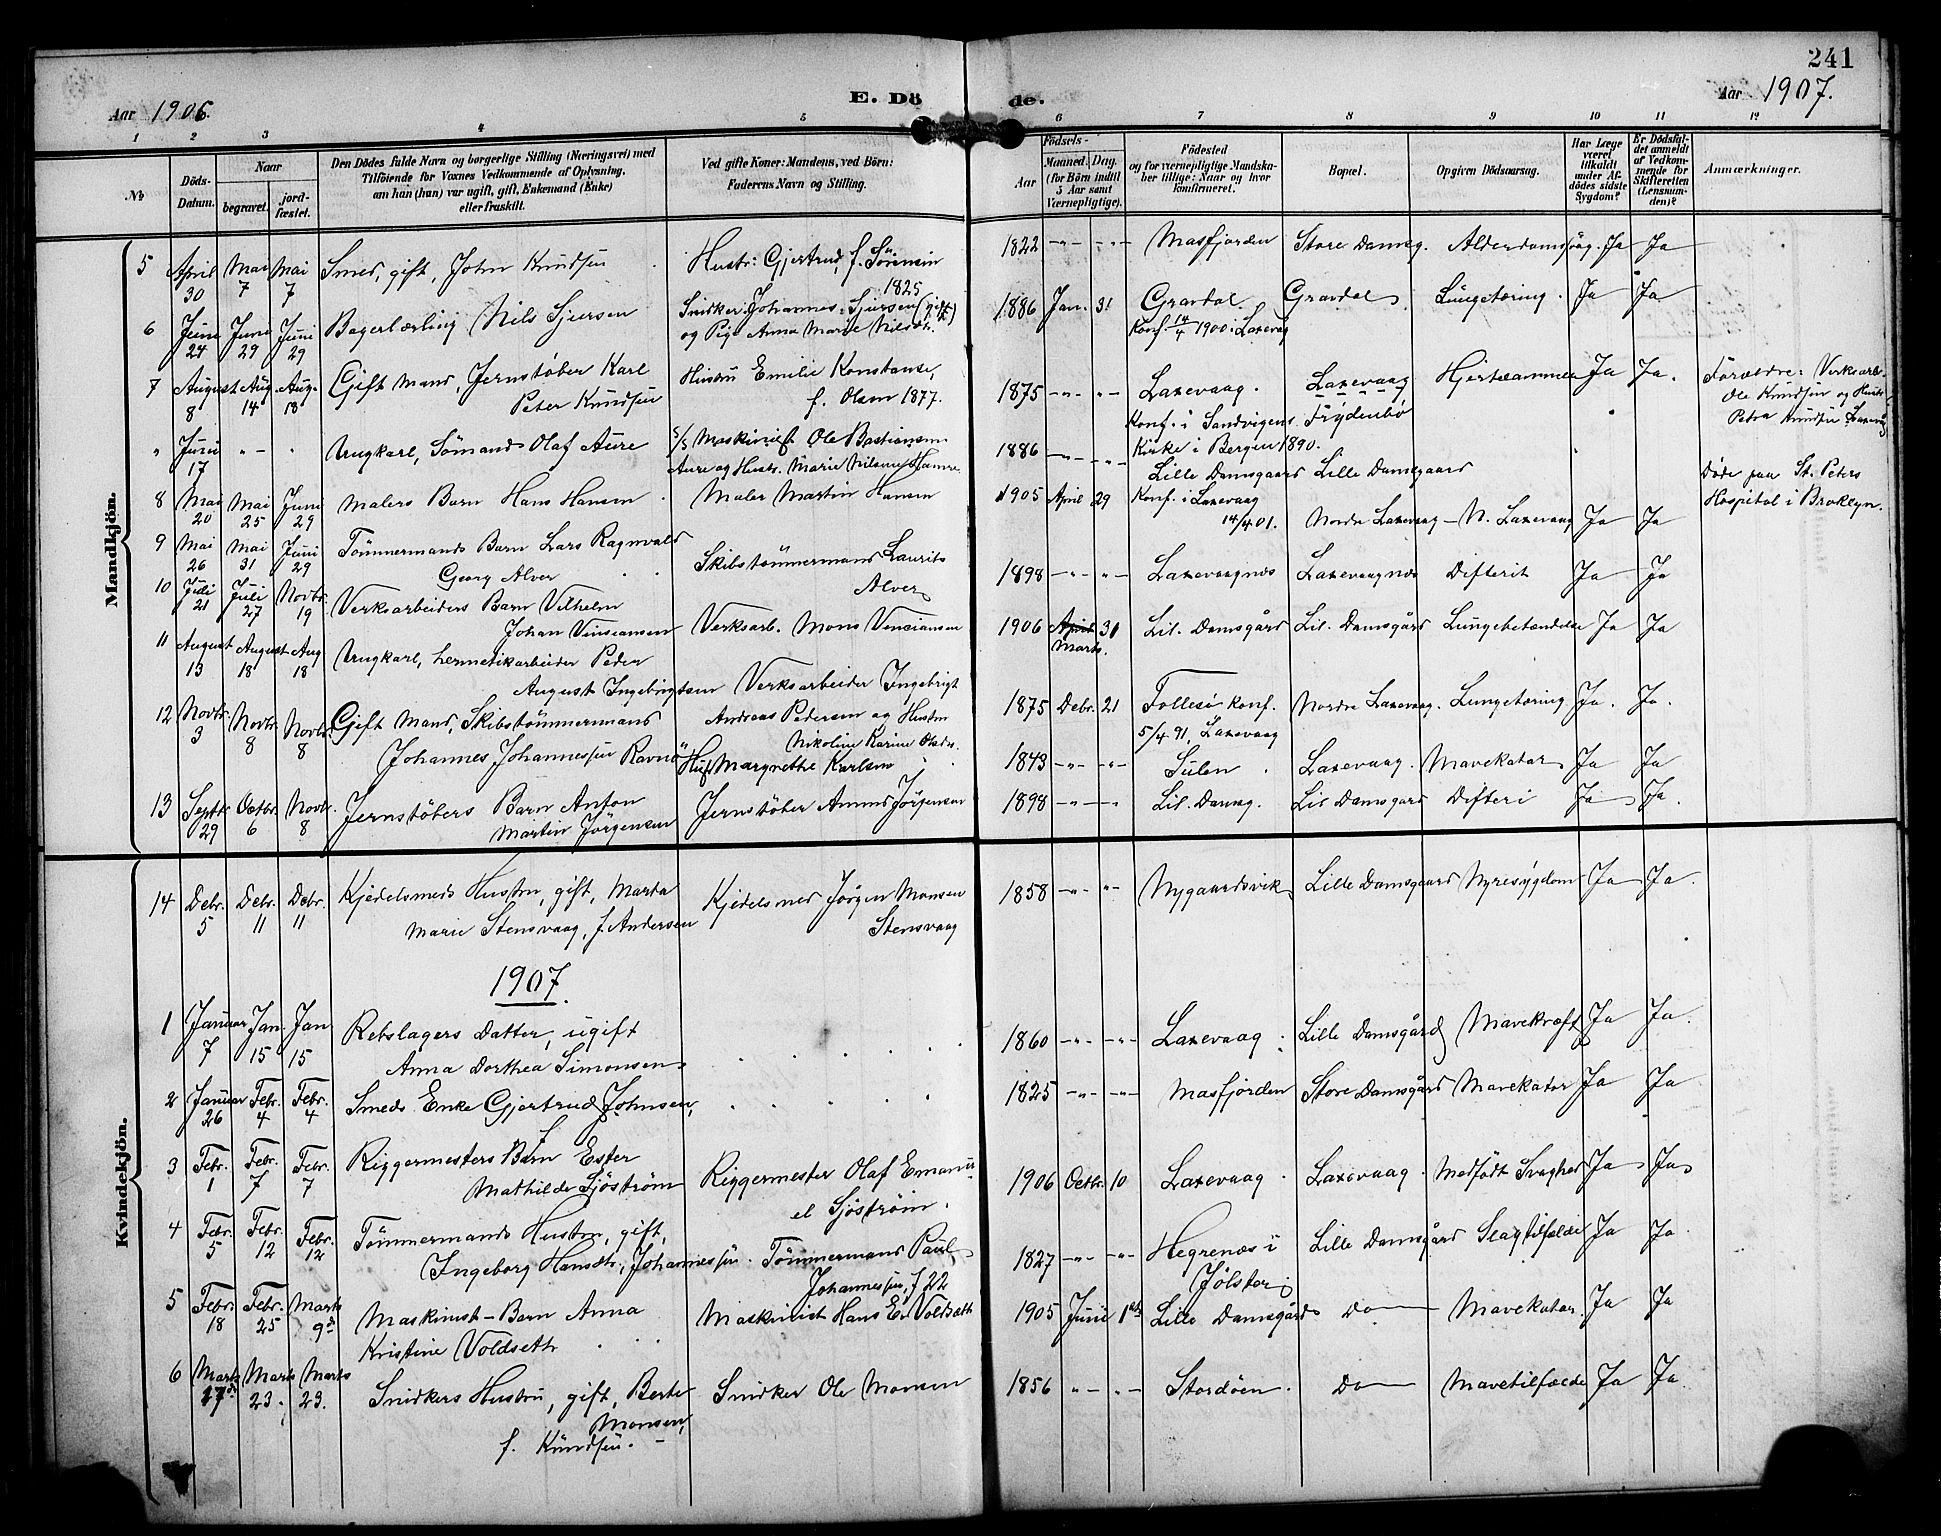 241
Aar 1906.
E. Dö
de.
Aar 1907.
1 2 3 4 5 6 7 8 9 10 11 12
№
Döds-Datum.
Naar
begravet.
jordfæstet.
Den Dödes fulde Navn og borgerlige Stilling (Næringsvei) med
Tilföiende for Voxnes Vedkommende af Oplysning,
om han (hun) var ugift, gift, Enkemand (Enke)
eller fraskilt.
Ved gifte Koner: Mandens, ved Börn:
Faderens Navn og Stilling.
Födsels-
Aar
Maaned. Dag.
(for Börn indtil
5 Aar samt
Værnepligtige).
Födested
og for værnepligtige Mandskaber tillige: Naar og hvor
konfirmeret.
Bopæl.
Opgiven Dödsaarsag.
Har Læge
været
tilkaldt
under Afdödes sidste
Sygdom?
Er Dödsfaldet anmeldt
af Vedkommende for
Skifteretten
(Lensmanden)?
Anmærkninger.
Mandkjön.
5 April 30 Mai 7 Mai 7 Smed, gift, John Knudsen Hustr: Gjertrud, f. Sörensen 1825 1822 Masfjorden Store Damsg. Ja Ja
6 Juni 24 Juni 29 Juni 29 Bagerlærling Nils Sjursen Snidker Johannes Sjursen (gift)
og Pige Anna Marie Nilsdtr. 1886 Jan. 31 Gravdal Gravdal Lungetæring. Ja Ja
Konf. 1900 i Laxevag
7 August 8 Aug. 14 Aug. 18 Gift Mand, Jernstöber Karl
Peter Knudsen Hustru Emilie Konstanse,
f. Olsen 1877. 1875 Laxevaag. Laxevaag Ja Ja.
Konf. i Sandvigens Frydenbö
Kirke i Bergen 1890.
Forældre: Verksarb.
Ole Knudsen og Hustr
Petra Knudsen Laxevåg
" Juni 17 Ungkarl, Sömand Olaf Aure Maskinist Ole Bastiansen
Aure og Hustr. Marie Nilsen 1886 Lille Damsgaard Lille Damsgaard
Konf. i Laxevaag
14/4 01.
Döde paa St. Peters
Hospital i Broklyn.
8 Mai 20 Mai 25 Juni 29 Malers Barn Hans Hansen Maler Martin Hansen 1905 April 29 Nordre Laxevaag N. Laxevaag Ja Ja
9 Mai 26 Mai 31 Juni 29 Tömmermands Barn Lars Ragnvald
Georg Alver Skibstömmermand Laurits
Alver 1898 Laxevaagnes Laxevaagnes Difterit Ja Ja
10 Juli 21 Juli 27 Novbr. 19 Verksarbeiders Barn Vilhelm
Johan Vinsiansen Verksarb. Mons Vinciansen 1906 April Marts. 31 Lil. Damsgård Lil. Damsgård Lungebetændelse Ja Ja
11 August 13 August 18 Aug 18 Ungkarl, hermetikarbeider Peder
August Ingebrigtsen Verksarbeider Ingebrigt
Andreas Pedersen og Hustru
Nikoline Karine Olsdr. 1875 Debr. 21 Follesö Konf. Nordre Laxevaag. Lungetæring Ja. Ja.
5/4 91, Laxevaag
12 Novbr. 3 Novbr. 8 Novbr. 8 Gift Mand, Skibstömmermand
Johannes Johannessen Ravnö Hust Margrethe Karlsen 1843 Sulen Laxevaag. Mavekatar Ja Ja
13 Septbr 29 Octbr. 6 Novbr. 8 Jernstöbers Barn Anton
Martin Jörgensen Jernstöber Jörgensen 1898 Lil. Damsg. Lil Damsgard Difteri Ja Ja.
Kvindekjön.
14 Debr. 5 Debr. 11 Debr. 11 Kjedelsmeds Hustru, gift, Marta
Marie Stensvaag, f. Andersen Kjedelsmed Jörgen Monsen
Stensvaag 1858 Nygaardsvik Lille Damsgaard Nyresygdom Ja Ja.
1907.
1 Januar 7 Jan. 15 Jan 15 Rebslagers Datter, ugift
Anna Dorthea Simonsen 1860 Laxevaag Lille Damsgård Mavekræft Ja Ja.
2 Januar 26 Febr. 4 Febr. 4 Smeds Enke Gjertrud Johnsen, 1825 Masfjorden Store Damsgård Mavekatar Ja Ja
3 Febr. 1 Febr. 7 Febr. 7 Riggermesters Barn Ester
Mathilde Sjöström Riggermester Olaf Emanuel Sjöström. 1906 Octbr. 10 Laxevaag Laxevaag Medfödt Svaghed Ja Ja
4 Febr. 5 Febr. 12 Febr. 12 Tömmermands Hustru, gift,
Ingeborg Hansdtr. Johannessen. Tömmermand Paul
Johannessen, f 22 1827 Hegrenæs i
Jölster Lille Damsgård Slagtilfælde Ja Ja.
5 Febr. 18 Febr. 25 Marts 9de Maskinist-Barn Anna
Kristine Voldseth Maskinist Hans Voldseth 1905 Juni 1ste Lille Damsgård Do Mavekatar. Ja Ja
6 Marts 17de Marts 23. Marts 23. Snidkers Hustru, gift, Berte
Monsen,
f. Knudsen. Snidker Ole Monsen 1856 Stordöen. Do Mavetilfælde Ja Ja.